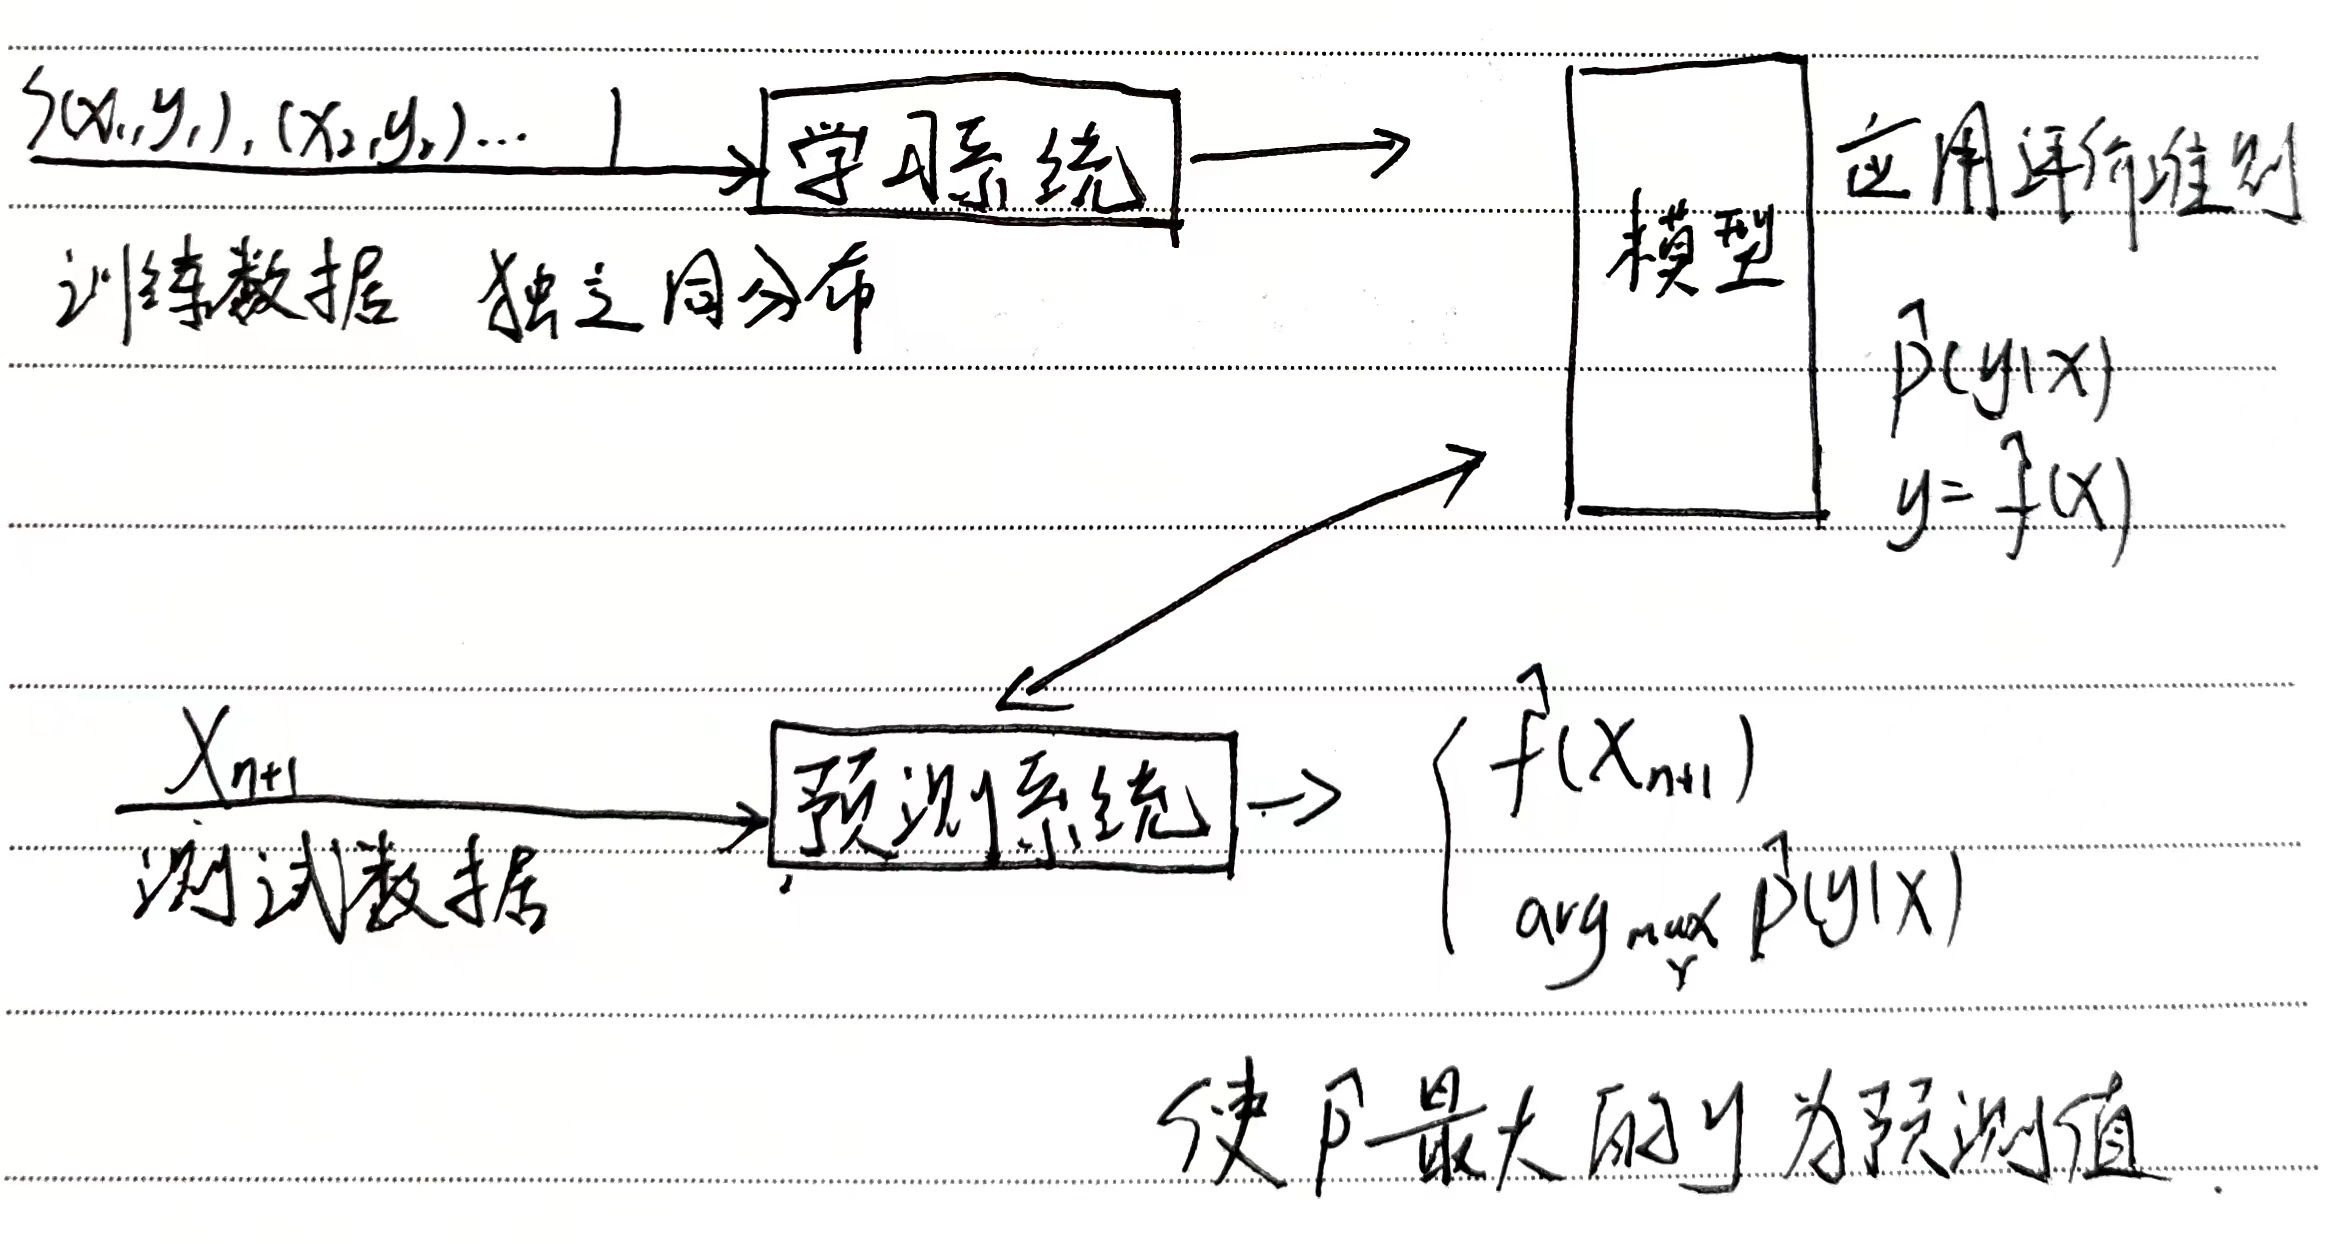 {(x₁,y₁),(x₂,y₂)... }
学习系统
训练数据 独立同分布
模型
应用评价准则
p̂(y|x)
y=f̂(x)
Xn+1
测试数据
预测系统
f̂(Xn+1)
arg max p̂(y|x)
Y
使p̂最大的y为预测值.